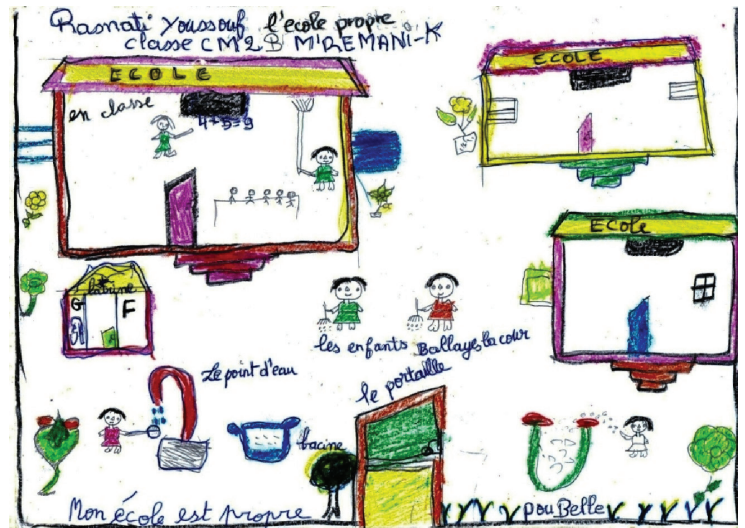 Rasnati Youssouf l'ecole propre
classe CM2 B M'REMANI-K
ECOLE
ECOLE
en classe
4+5=9
ECole
latrine
G F
les enfants Ballaye la cour
Le point d'eau
le portaille
bacine
Mon école est propre
pouBelle